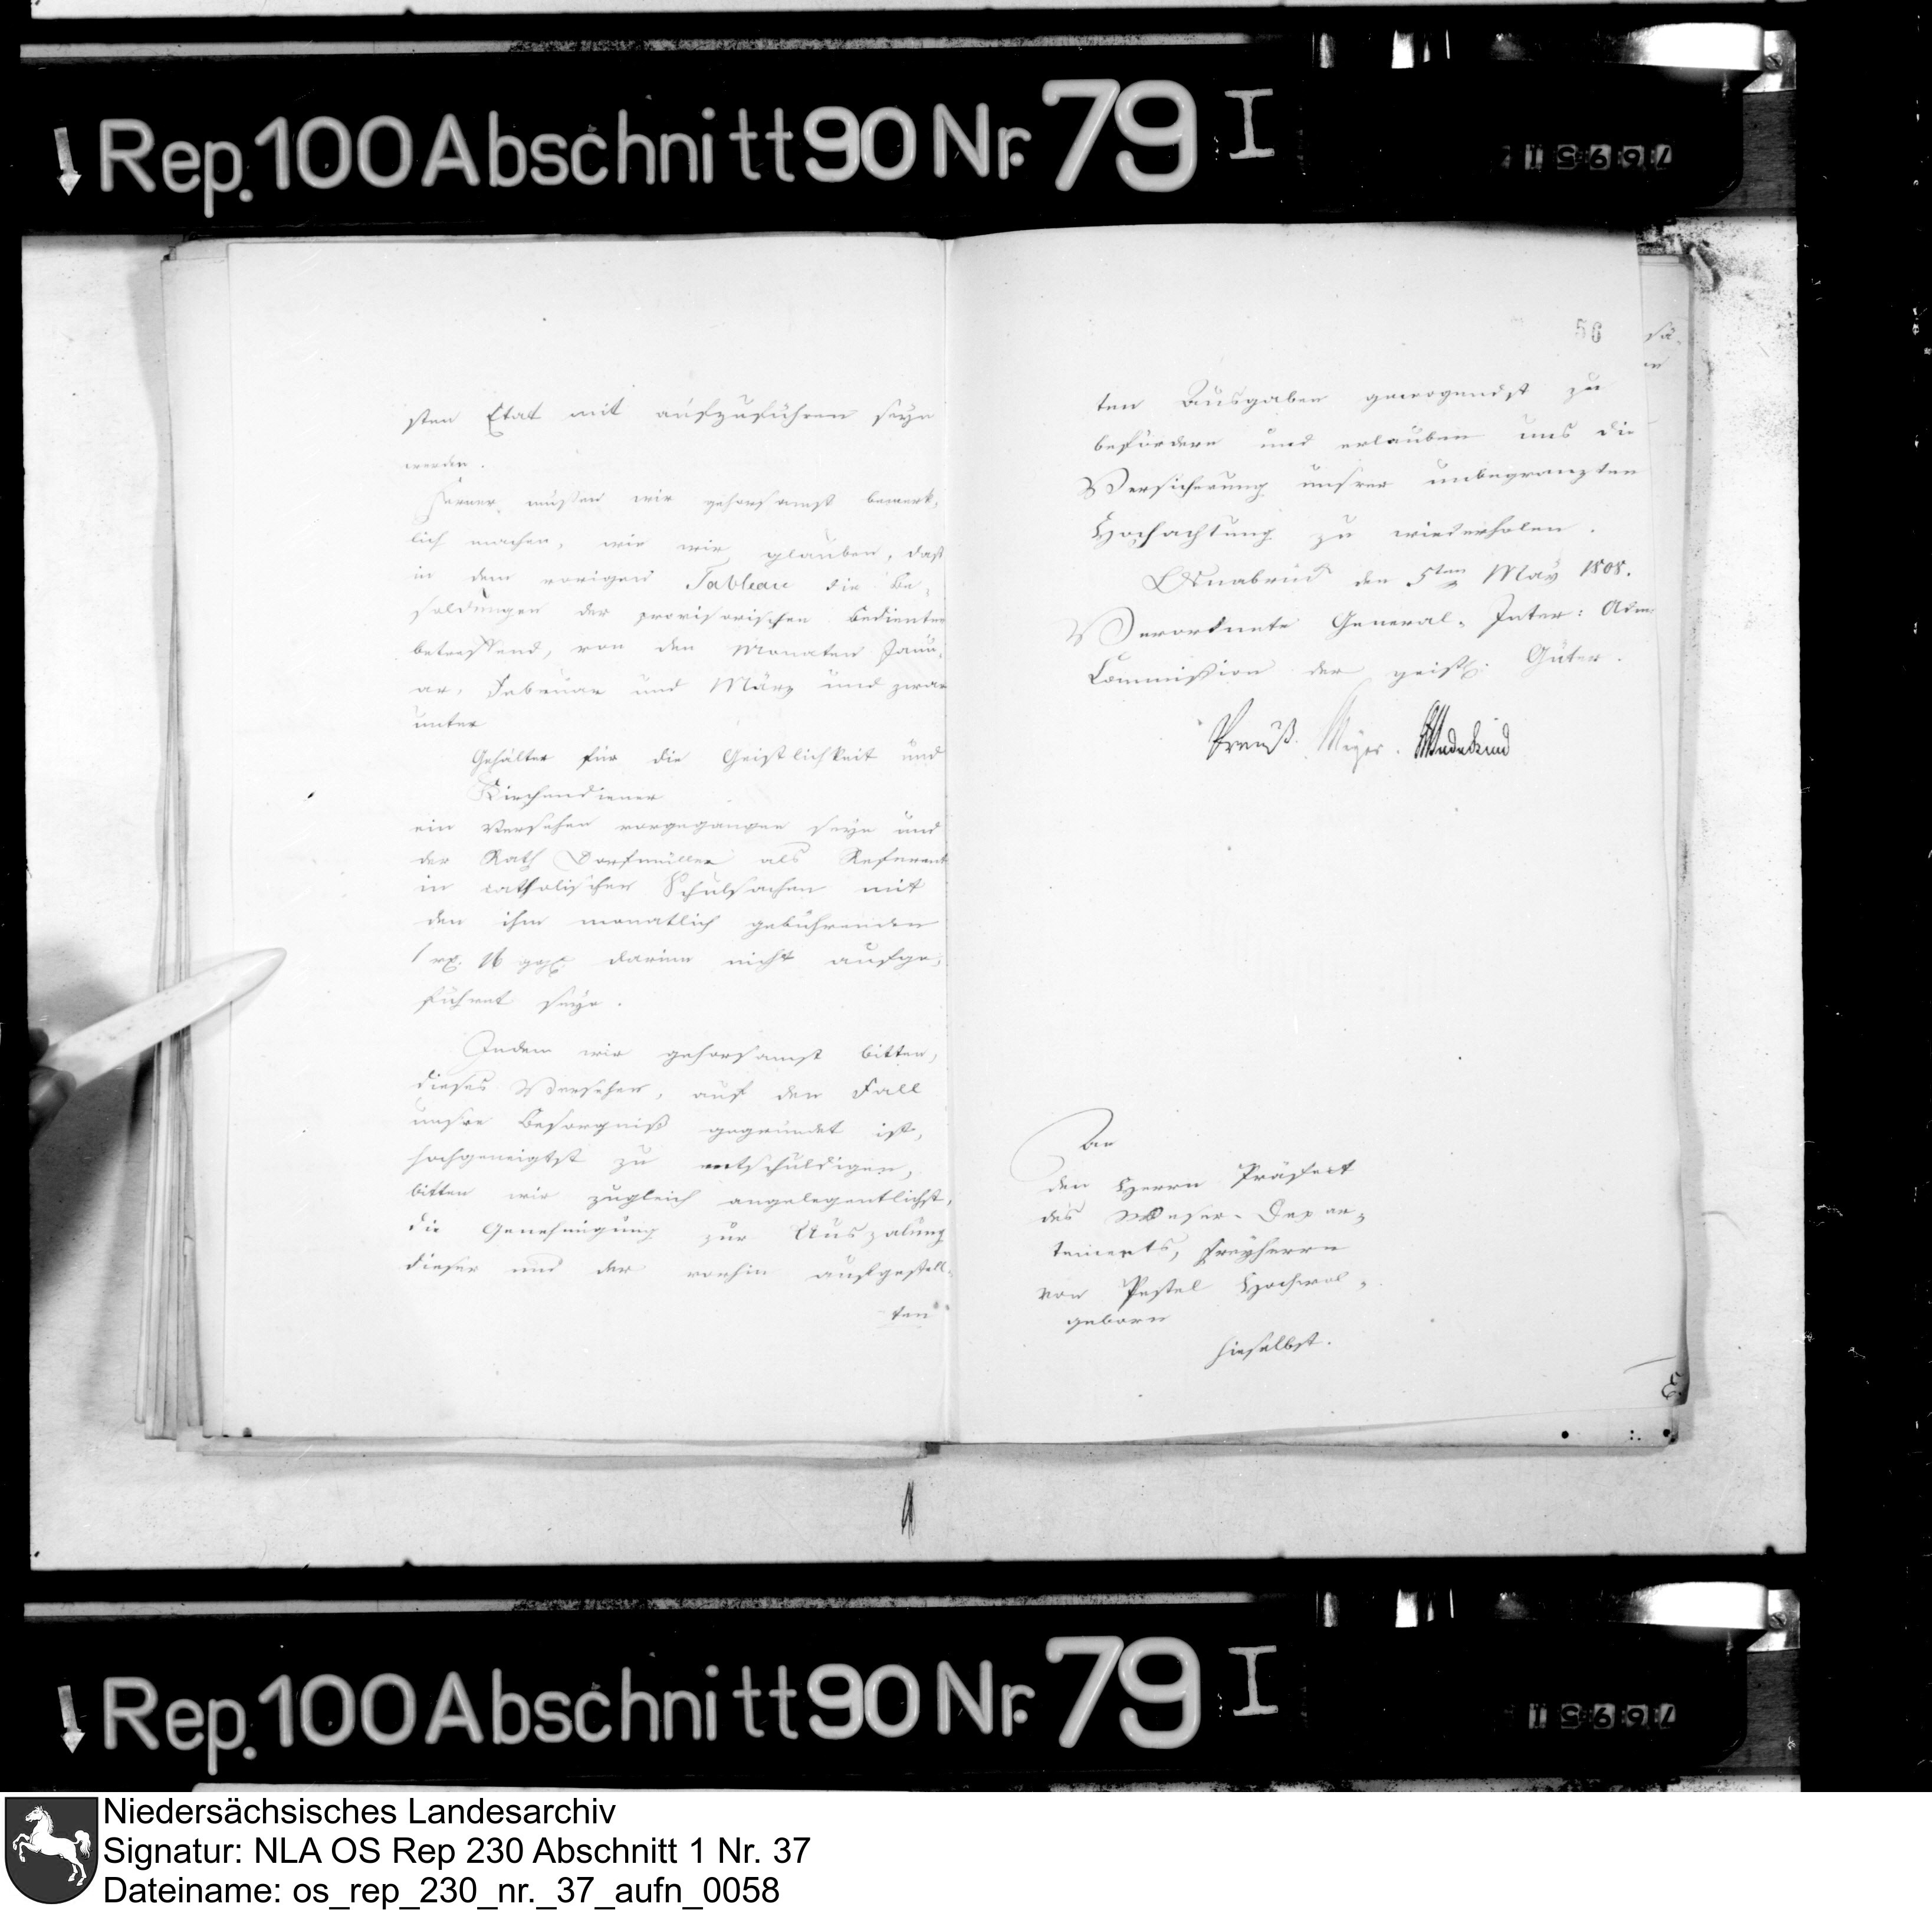 Rep. 100 Abschnitt 90 Nr. 79 I
sten Etat mit aufzuführen seyn
werden.
Ferner mußen wir gehorsamst bemerk-
lich machen, wie wir glauben, daß
in dem vorigen Tableau die Be-
soldungen der provisorischen Bedienten
betreffend, von den Monaten Janu-
ar, Februar und März und zwar
unter
Gehälter für die Geistlichkeit und
Kirchendiener
ein Versehen vorgegangen seye und
der Rath Dorfmüller als Referent
in catholischen Schulsachen mit
den ihm monatlich gebührenden
1 rh. 16 ggl. darinn nicht aufge-
führet seye.
Indem wir gehorsamst bitten,
dieses Versehen, auf den Fall
unsre Besorgniß gegründet ist,
hochgeneigtst zu entschuldigen,
bitten wir zugleich angelegentlichst,
die Genehmigung zur Auszalung
dieser und der vorhin aufgestell-
ten
56
ten Ausgaben gewogendst zu
befördern und erlauben uns die
Versicherung unsrer unbegranzten
Hochachtung zu wiederholen.
Osnabrück den 5ten May 1808.
Verordnete General-Inter: Adm:
Commißion der geistl. Güter.
Preuß. Meyer. Wedekind
An
den Herrn Präfect
des Weser-Depar-
tements, Freyherrn
von Pestel Hochwol-
geborn
hieselbst.
Rep. 100 Abschnitt 90 Nr. 79 I
Niedersächsisches Landesarchiv
Signatur: NLA OS Rep 230 Abschnitt 1 Nr. 37
Dateiname: os_rep_230_nr._37_aufn_0058